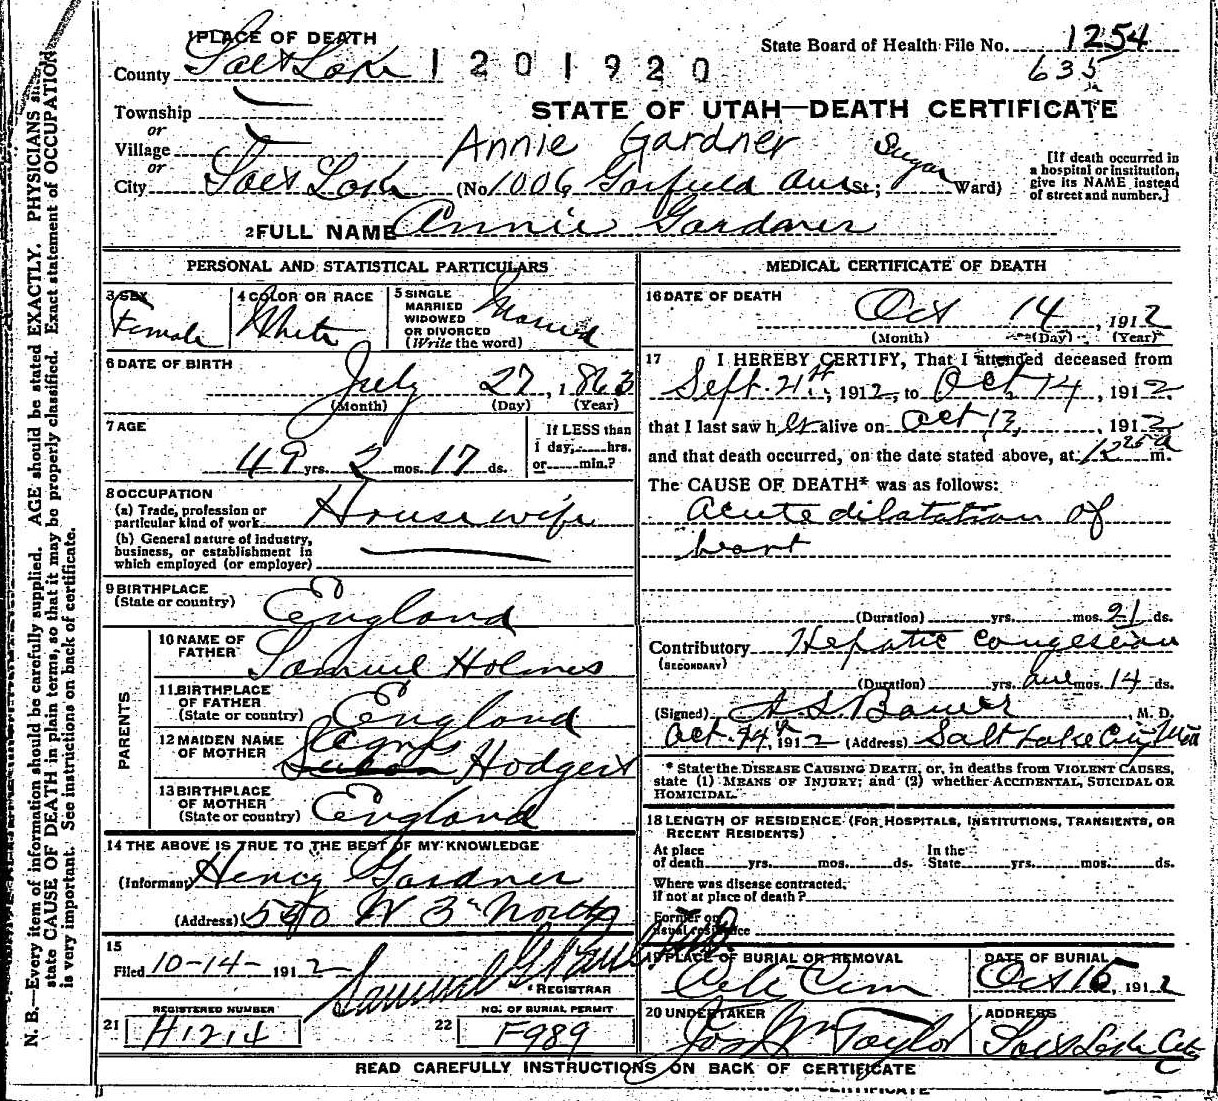 1 PLACE OF DEATH
State Board of Health File No. 1254
County Salt Lake 1201920
635
STATE OF UTAH—DEATH CERTIFICATE
Township
or
Village
Annie Gardner
or
City Salt Lake (No. 1006 Garfield Ave St.; Sugar Ward)
[If death occurred in a hospital or institution, give its NAME instead of street and number.]
2 FULL NAME Annie Gardner
PERSONAL AND STATISTICAL PARTICULARS
3 SEX Female
4 COLOR OR RACE White
5 SINGLE MARRIED WIDOWED OR DIVORCED (Write the word) Married
6 DATE OF BIRTH
July 27, 1863
(Month) (Day) (Year)
7 AGE
49 yrs. 2 mos. 17 ds.
If LESS than 1 day, hrs. or min.?
8 OCCUPATION
(a) Trade, profession or particular kind of work Housewife
(b) General nature of industry, business, or establishment in which employed (or employer)
9 BIRTHPLACE (State or country) England
PARENTS
10 NAME OF FATHER Samuel Holmes
11 BIRTHPLACE OF FATHER (State or country) England
12 MAIDEN NAME OF MOTHER Hodgert
13 BIRTHPLACE OF MOTHER (State or country) England
14 THE ABOVE IS TRUE TO THE BEST OF MY KNOWLEDGE
(Informant) Henry Gardner
(Address) W 3rd North
15
Filed 10-14-1912 Samuel G. REGISTRAR
REGISTERED NUMBER
21 H1214
NO. OF BURIAL PERMIT
22 F989
MEDICAL CERTIFICATE OF DEATH
16 DATE OF DEATH
Oct 14, 1912
(Month) (Day) (Year)
17 I HEREBY CERTIFY, That I attended deceased from
Sept. 21st, 1912, to Oct 14, 1912
that I last saw her alive on Oct 13, 1912
and that death occurred, on the date stated above, at 12 25 a m.
The CAUSE OF DEATH* was as follows:
Acute dilatation of
heart
(Duration) yrs. mos. 21 ds.
Contributory Hepatic congestion
(SECONDARY)
(Duration) yrs. one mos. 14 ds.
(Signed) A S Bower, M. D.
Oct. 14th, 1912 (Address) Salt Lake City Utah
* State the DISEASE CAUSING DEATH, or, in deaths from VIOLENT CAUSES,
state (1) MEANS OF INJURY; and (2) whether ACCIDENTAL, SUICIDAL OR
HOMICIDAL.
18 LENGTH OF RESIDENCE (FOR HOSPITALS, INSTITUTIONS, TRANSIENTS, OR
RECENT RESIDENTS)
At place of death yrs. mos. ds. In the State yrs. mos. ds.
Where was disease contracted, if not at place of death?
Former or usual residence
19 PLACE OF BURIAL OR REMOVAL
City Cem
DATE OF BURIAL
Oct 16, 1912
20 UNDERTAKER
Jos Wm Taylor
ADDRESS
Salt Lake City
READ CAREFULLY INSTRUCTIONS ON BACK OF CERTIFICATE
N. B.—Every item of information should be carefully supplied. AGE should be stated EXACTLY. PHYSICIANS
state CAUSE OF DEATH in plain terms, so that it may be properly classified. Exact statement of OCCUPATION
is very important. See instructions on back of certificate.